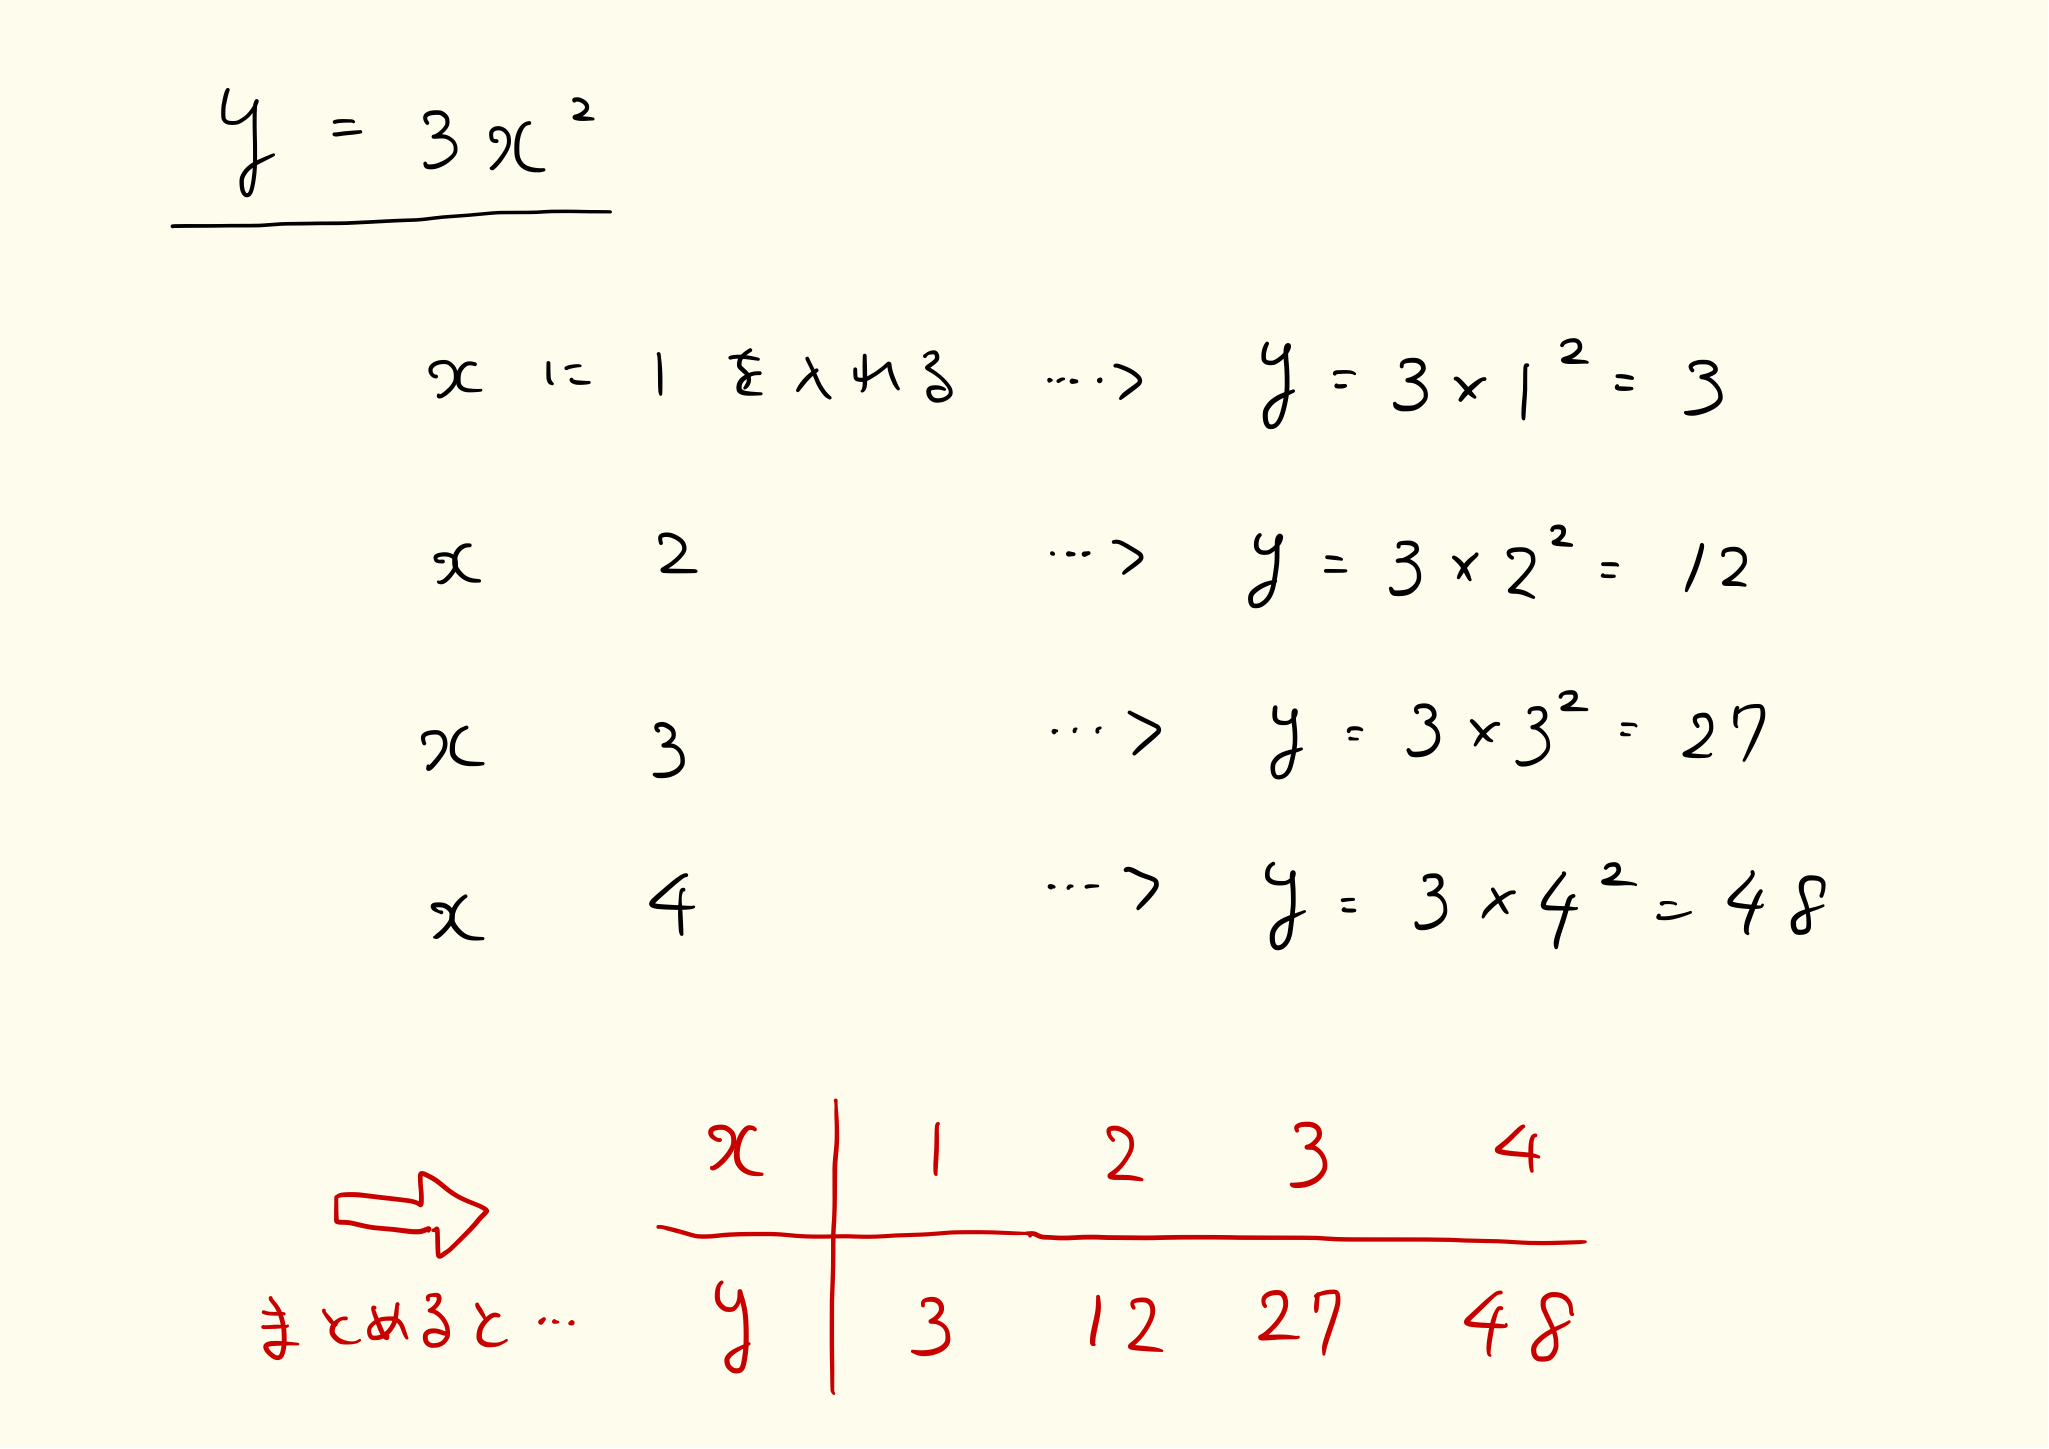 y = 3x²
x に 1 を入れる ····> y = 3 × 1² = 3
x 2 ···> y = 3 × 2² = 12
x 3 ···> y = 3 × 3² = 27
x 4 ···> y = 3 × 4² = 48
x 1 2 3 4
まとめると…
y 3 12 27 48